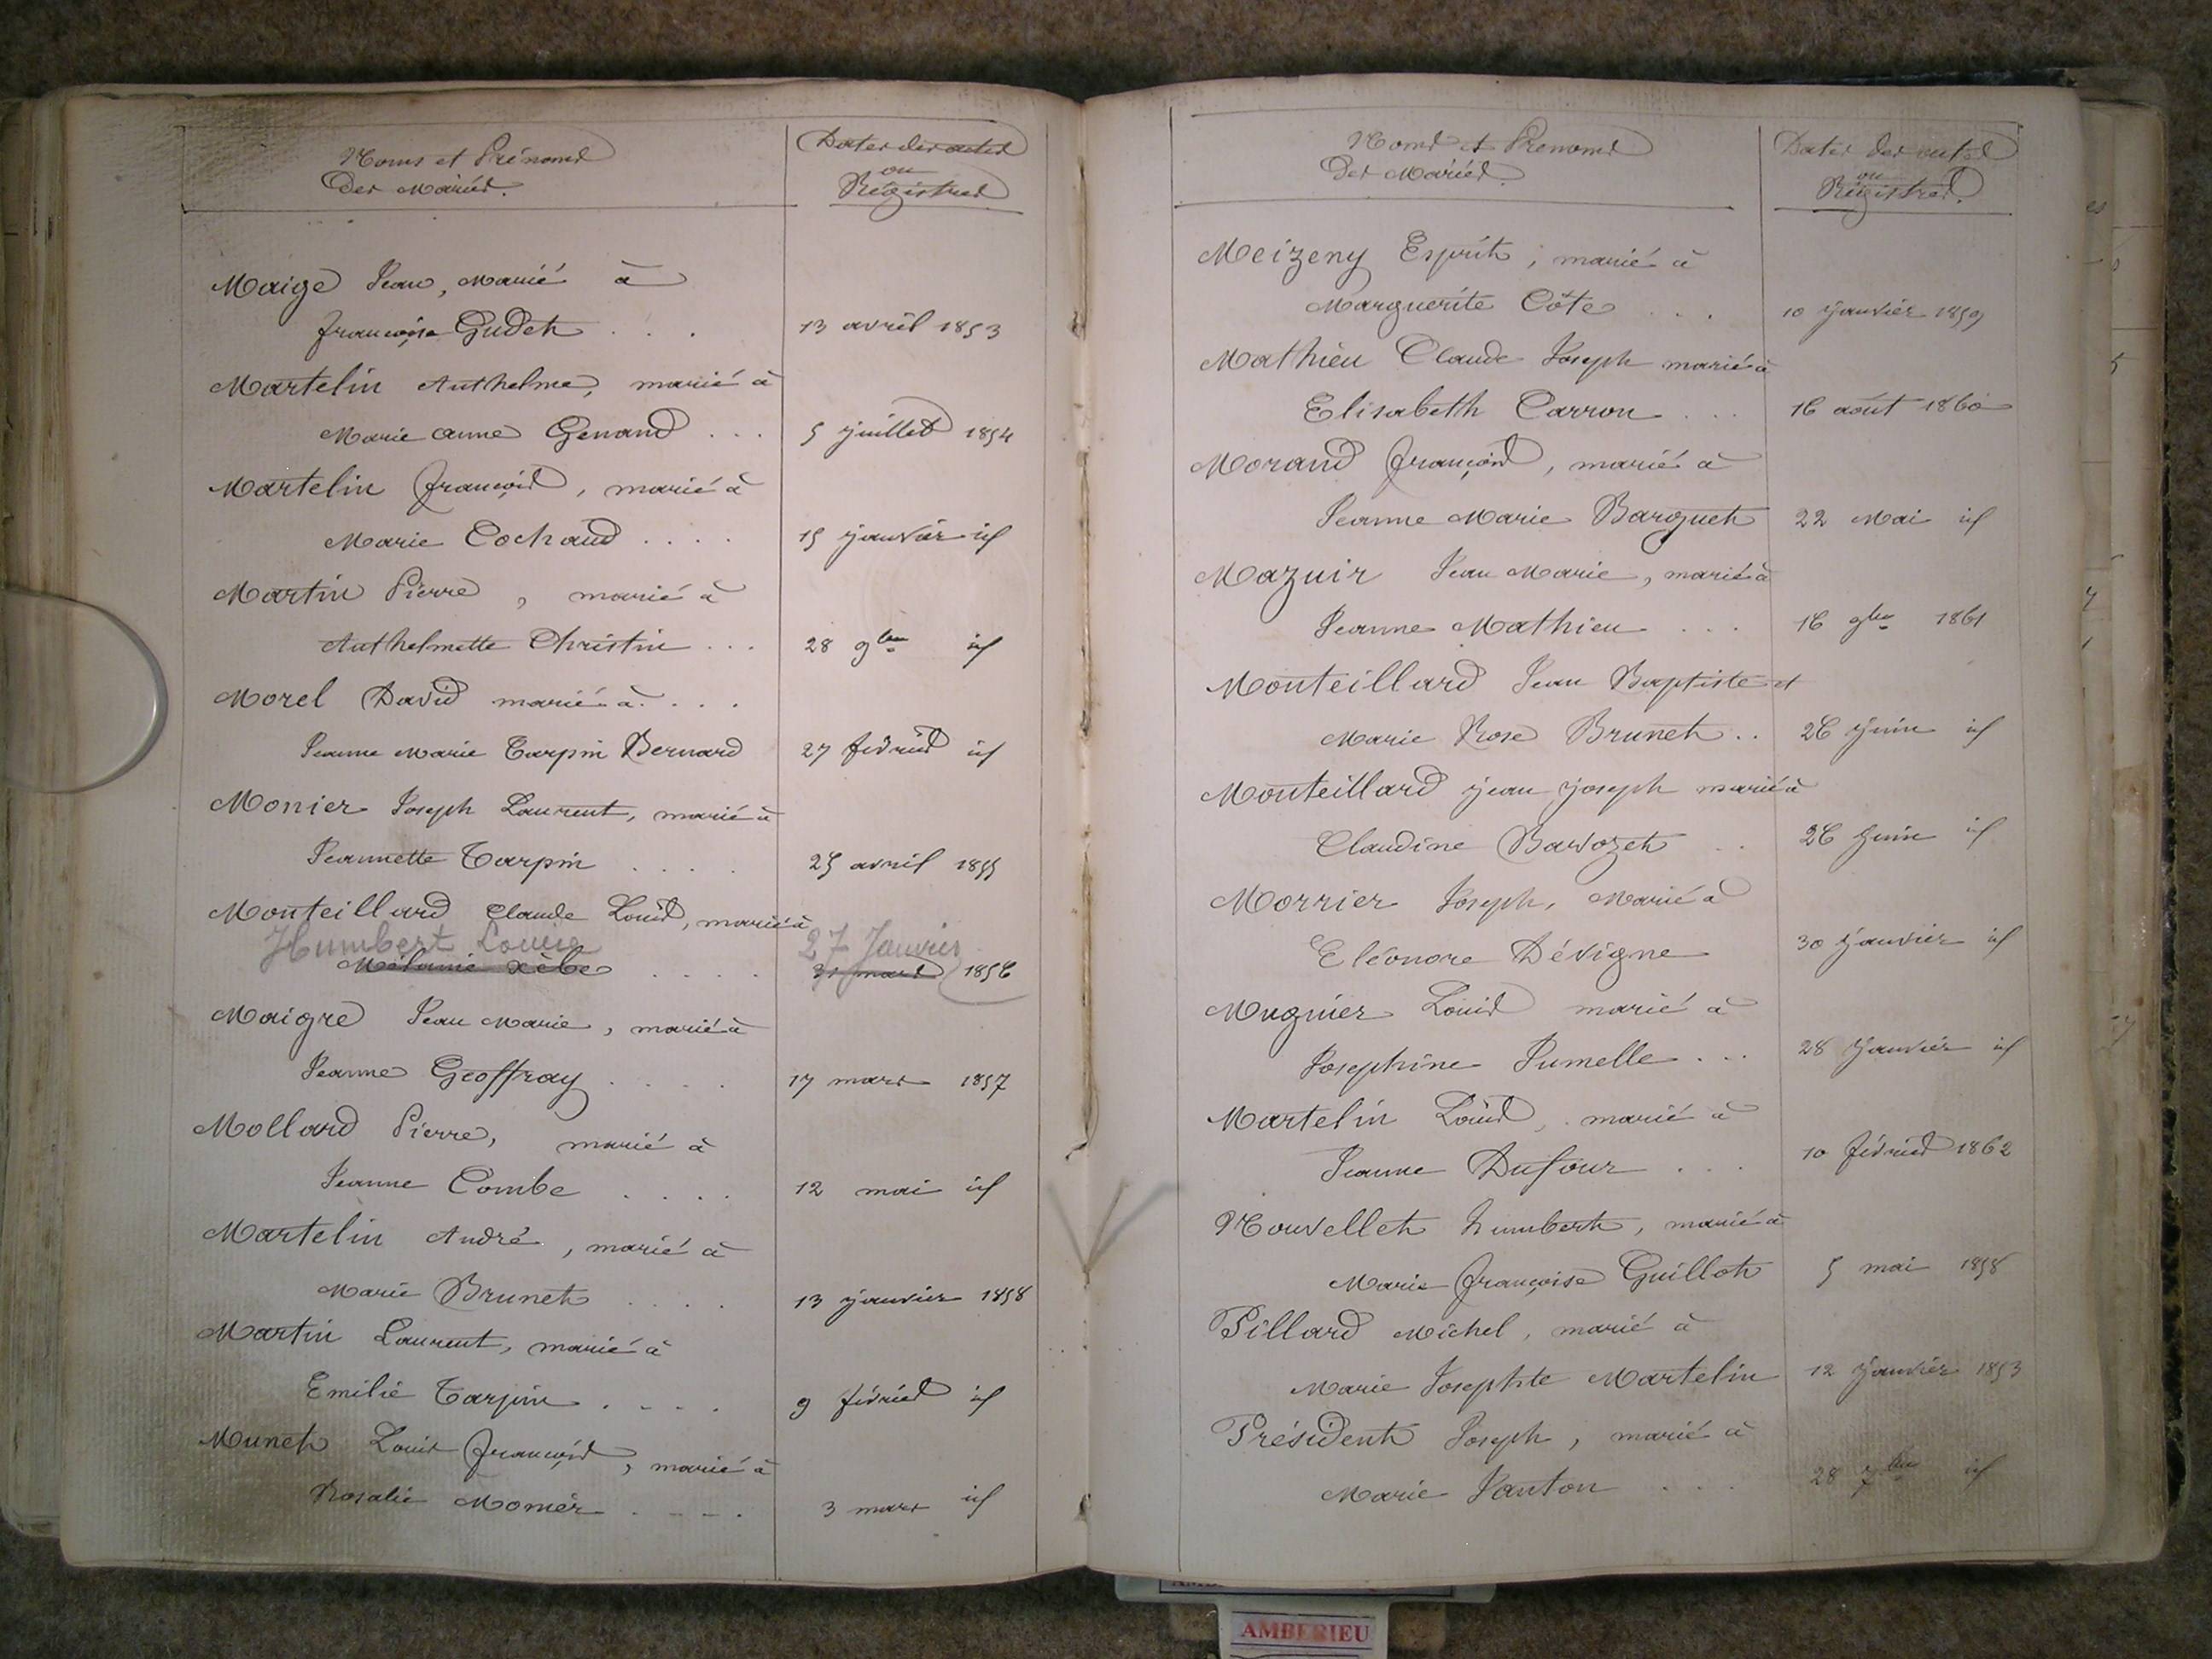 Noms et Prénoms
Des Mariés.
Dates des actes
ou
Régistres
Maige Jean, Marié à
françoise Gudet . . .
13 avril 1853
Martelin Anthelme, marié à
Marie anne Genand . . .
5 juillet 1854
Martelin françois, marié à
Marie Cochaud . . . .
15 janvier id
Martin Pierre, marié à
Anthelmette Christin . . .
28 9bre id
Morel David marié à . . .
Jeanne Marie Tarpin Bernard
27 février id
Monier Joseph Laurent, marié à
Jeannette Tarpin . . . .
25 avril 1855
Monteillard Claude Louis, marié à
Humbert Louise
27 Janvier
Mélanie . . . .
31 mars 1856
Maigre Jean Marie, marié à
Jeanne Geoffray . . . .
17 mars 1857
Mollard Pierre, marié à
Jeanne Combe . . . .
12 mai id
Martelin André, marié à
Marie Brunet . . . .
13 janvier 1858
Martin Laurent, marié à
Emilie Tarpin . . . .
9 février id
Munet Louis françois, marié à
Rosalie Monier . . . .
3 mars id
Noms et Prenoms
Des Mariés.
Dates des actes
ou
Régistres.
Meizeny Esprit, marié à
Marguerite Côte . . .
10 janvier 1859
Mathieu Claude Joseph marié à
Elisabeth Carron . . .
16 août 1860
Morand françois, marié à
Jeanne Marie Barquet
22 Mai id
Mazuir Jean Marie, marié à
Jeanne Mathieu . . .
16 9bre 1861
Monteillard Jean Baptiste et
Marie Rose Brunet . .
26 juin id
Monteillard jean joseph marié à
Claudine Bavozet . .
26 juin id
Morrier Joseph, Marié à
Eléonore Dévigne
30 janvier id
Mugnier Louis marié à
Josephine Jumelle . . .
28 janvier id
Martelin Louis, marié à
Jeanne Dufour . . .
10 février 1862
Nouvellet humbert, marié à
Marie françoise Guillot
5 mai 1858
Pillard Michel, marié à
Marie Josephte Martelin
12 janvier 1853
Président Joseph, marié à
Marie Janton . . .
28 7bre id
AMBERIEU